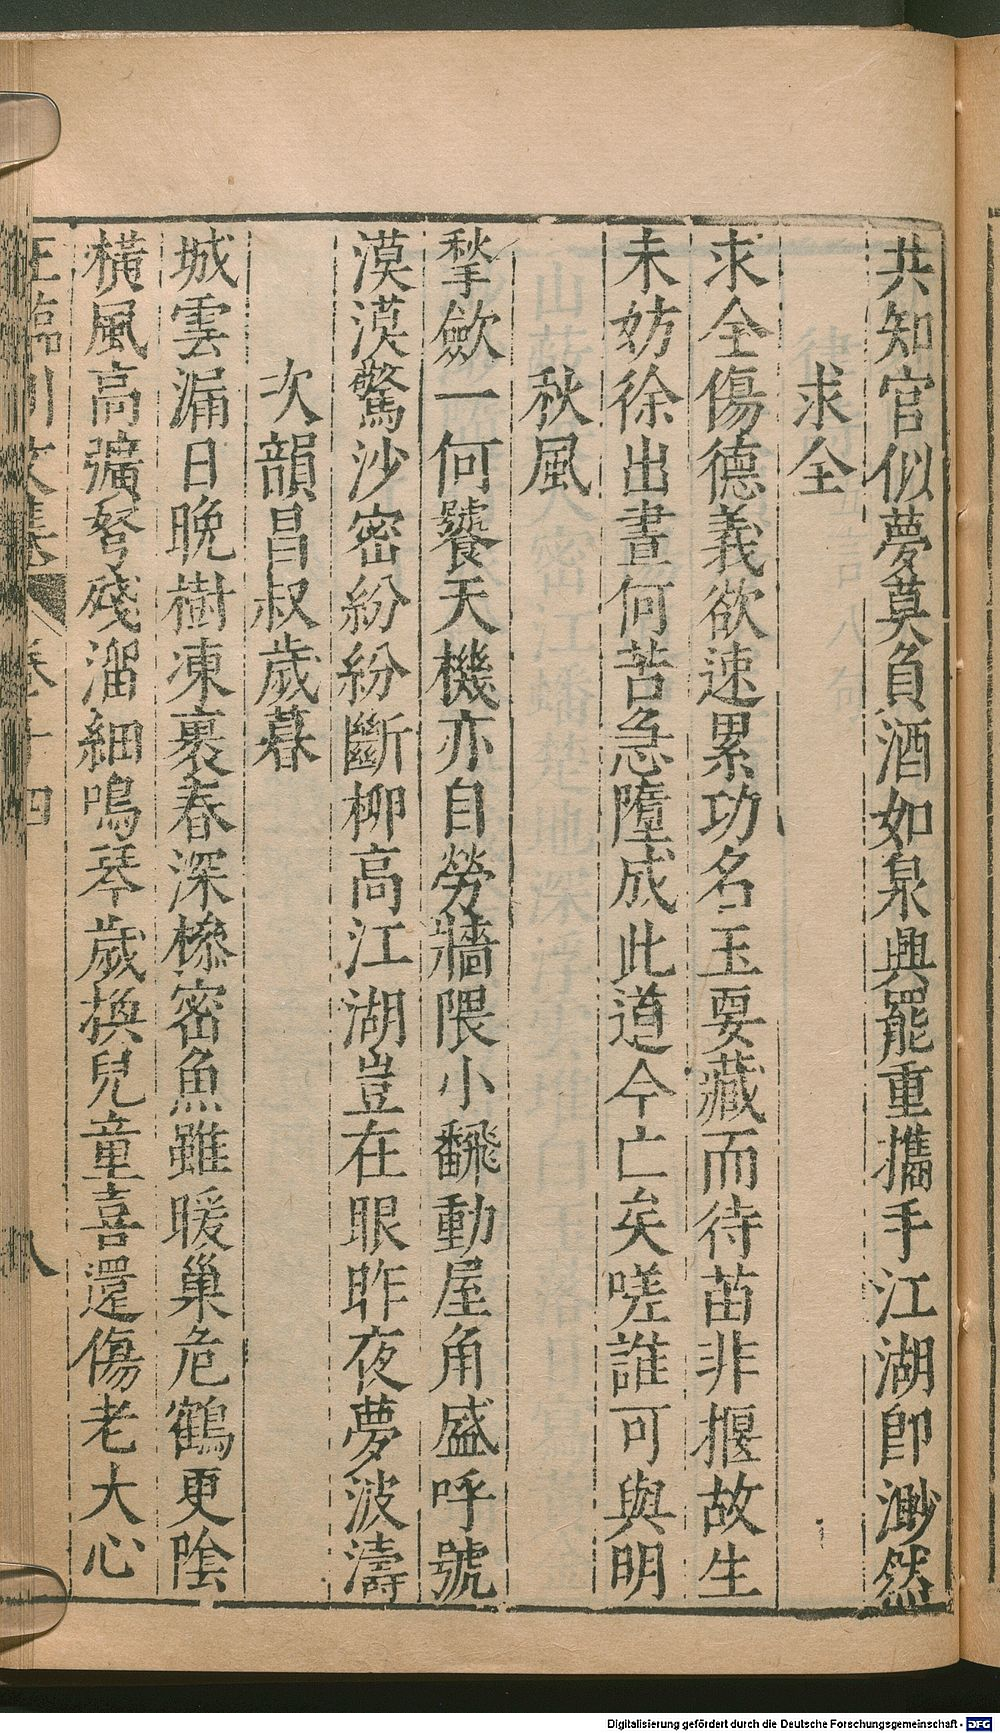 共知官似夢莫負酒如泉興罷重攜手江湖卽渺然
求全
求全傷德義欲速累功名玉要藏而待苗非揠故生
未妨徐出晝何苦急墮成此道今亡矣嗟誰可與明
秋風
揫歛一何饕天機亦自勞牆隈小翻動屋角盛呼號
漠漠驚沙密紛紛斷柳高江湖豈在眼昨夜夢波濤
次韻昌叔歲暮
城雲漏日晚樹凍裹春深槮密魚雖暖巢危鶴更陰
橫風高彍弩殘溜細鳴琴歲換兒童喜還傷老大心
王臨川文集 卷十四 八
Digitalisierung gefördert durch die Deutsche Forschungsgemeinschaft - DFG